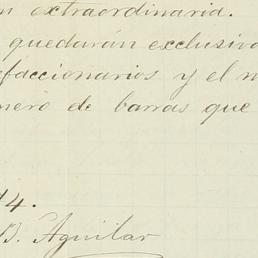 n extraordinaria.
quedarán exclusiv
faccionarios y el n
nero de barras que
4.
B. Aguilar